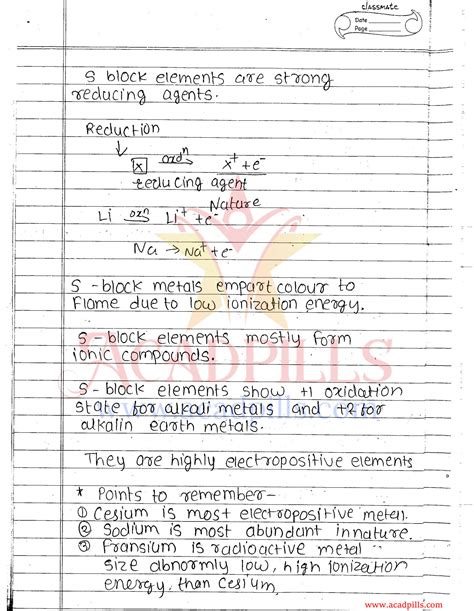 classmate
Date
Page
S block elements are strong
reducing agents.
Reduction
X oxdn x+ + e-
reducing agent
Nature
Li oxn Li+ + e-
Na → Na+ + e-
S - block metals empart colour to
Flame due to low ionization energy.
S - block elements mostly form
ionic compounds.
S - block elements show +1 oxidation
state for alkali metals and +2 for
alkalin earth metals.
They are highly electropositive elements
* Points to remember-
① Cesium is most electropositive metal.
② Sodium is most abundant in nature.
③ Fransium is radioactive metal
size abnormly low, high ionization
energy, than Cesium,
ACADPILLS
www.acadpills.com
www.acadpills.com